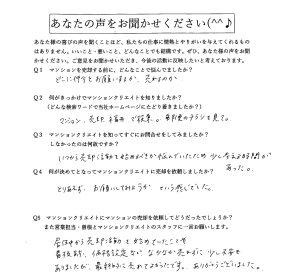 あなたの声をお聞かせください(^^♪
あなた様の喜びの声を聞くことほど、私たちの仕事に情熱とやりがいを与えてくれるもの
はありません。いいこと・悪いこと、どんなことでも結構です。ぜひ、あなた様の声をお
聞かせください。ご意見をお聞かせいただき、今後の活動に反映したいと考えております。
Q1 マンションを売却する前に、どんなことで悩んでましたか?
どこに仲介をお願いするか、売れるのか
Q2 何がきっかけでマンションクリエイトを知りましたか?
(どんな検索ワードで当社ホームページにたどり着きましたか?)
マンション、売却 で検索。 チラシを見て。
Q3 マンションクリエイトを知ってすぐにお問合せをしてみましたか?
しなかったのは何故ですか?
いつから売却活動を始めるべきか悩んでいたため 少し考える時間が
あった。
Q4 何が決めてとなってマンションクリエイトに売却を依頼しましたか?
とりあえず、お願いしてみようか という感じでした。
Q5 マンションクリエイトにマンションの売却を依頼してどうだったでしょうか?
また営業担当・曽根とマンションクリエイトのスタッフに一言お願いします。
売却活動を始めていたことで
最後、価格設定など なかなか売れずに 少し不安も
ありましたが、最終的に売れてよかったです。ありがとうございました。